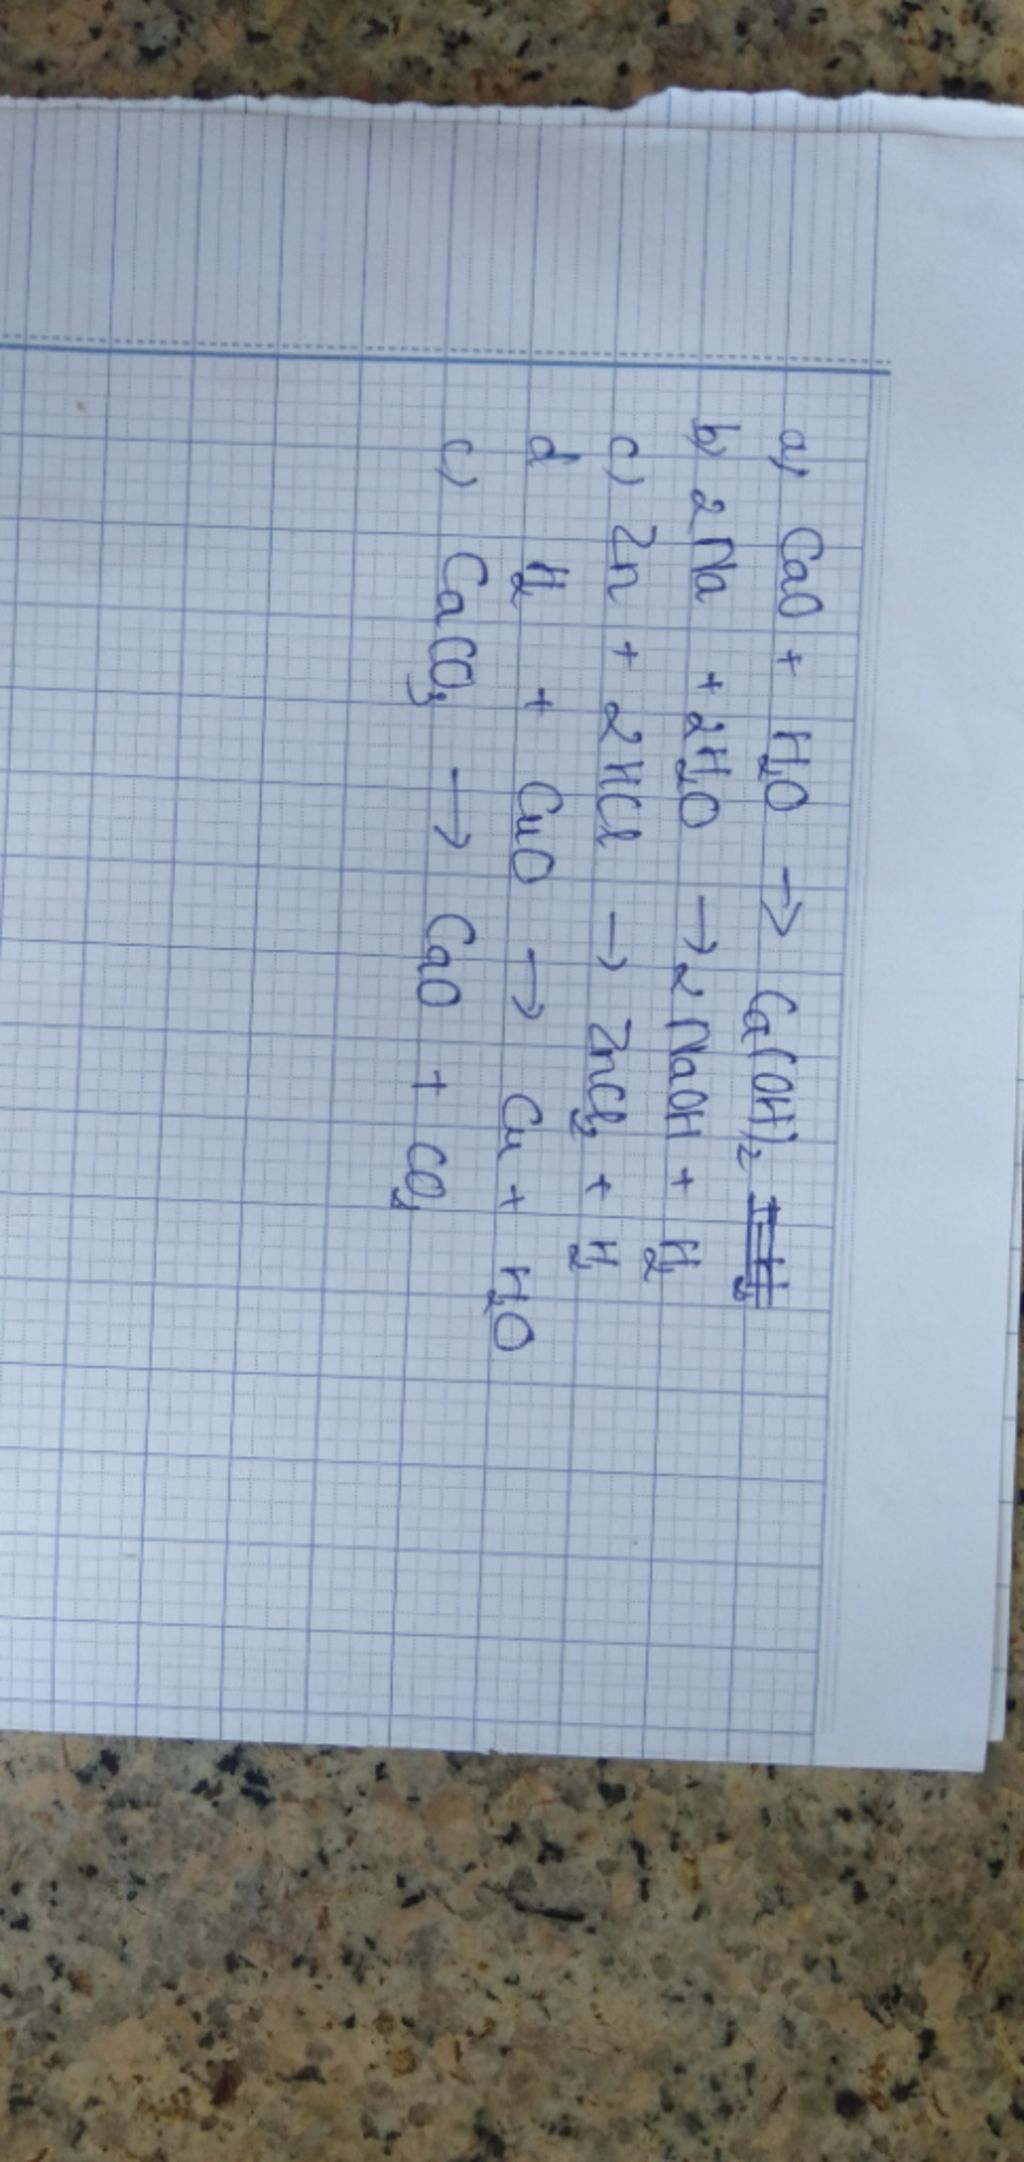 a) CaO + H₂O → Ca(OH)₂
b) 2Na + 2H₂O → 2NaOH + H₂
c) Zn + 2HCl → ZnCl₂ + H₂
d H₂ + CuO → Cu + H₂O
c) CaCO₃ → CaO + CO₂